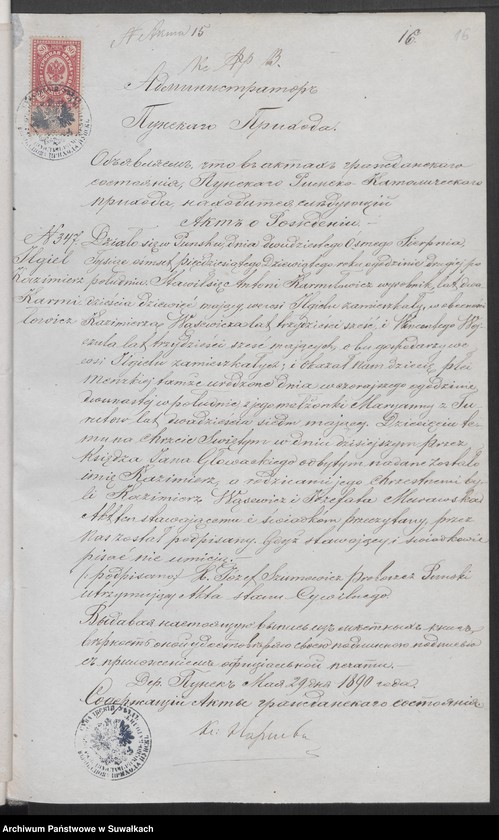 N Akta 15
16
16
Администраторъ
Пунскаго Прихода.
Объявляемъ, что въ актахъ гражданскаго
состоянія, Пунскаго Римско-Католическаго
прихода, находится слѣдующій
Актъ о Рожденіи.
N 347 Działo się w Puńsku, dnia dwudziestego Osmego Sierpnia
Ilgiel tysiąc ośmset pięćdziesiątego dziewiątego roku o godzinie drugiej po
Kazimierz południu. Stawił się Antoni Karmelowicz wyrobnik, lat dwa
Karme dzieścia dziewięć mający, we wsi Ilgielu zamieszkały, w obecności
lowicz Kazimierza Wąsewicza lat trzydzieści sześć, i Wincentego
lat trzydzieści sześć mających, obu gospodarzy we
wsi Ilgielu zamieszkałych; i okazał Nam dziecię płci
męzkiej tamże urodzone dnia wczorajszego o godzinie
dwunastej w południe z jego małżonki Maryanny z
lat dwadzieścia siedm mającej. Dziecięciu te
mu na Chrzcie Świętym w dniu dzisiejszym przez
Księdza Jana Głowackiego odbytym nadane zostało
imię Kazimierz, a rodzicami jego Chrzestnemi by
li Kazimierz Wąsewicz i Józefata
Akt ten stawającemu i świadkom przeczytany, przez
Nas został podpisany. Gdyż stawający i świadkowie
pisać nie umieją.
(podpisano) X. Józef Szumowicz proboszcz Puński
utrzymujący Akta stanu Cywilnego
Выдавая настоящую выпись изъ мѣстныхъ книгъ,
вѣрность оной удостовѣряю своею подписью
съ приложеніемъ официальной печати.
Дер. Пунскъ Мая 29 дня 1890 года.
Содержащій Акты гражданскаго состоянія
Кс:
Archiwum Państwowe w Suwałkach